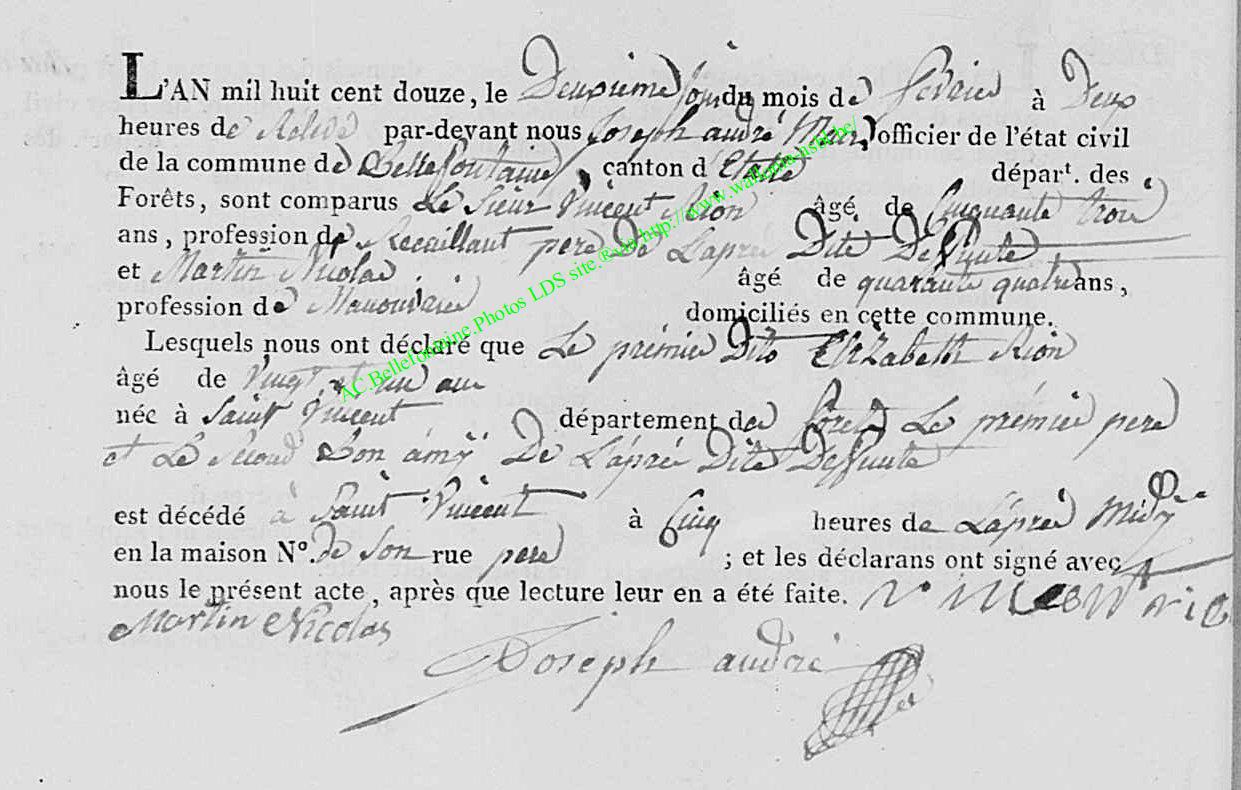 L'AN mil huit cent douze, le Deuxieme jour du mois de fevrier à Deux
heures de Relevé par-devant nous Joseph andré Maire officier de l'état civil
de la commune de Bellefontaine, canton d'Etalle départ. des
Forêts, sont comparus Le Sieur Vincent Rion âgé de Cinquante trois
ans, profession de pere De L'apré Dite Defunte
et Martin Nicolas âgé de quarante quatre ans,
profession de Manouvrier domiciliés en cette commune.
Lesquels nous ont déclaré que Le prémier Dito Elizabeth Rion
âgé de Vingt et un an
née à Saint Vincent département des forets Le prémier pere
et Le Second Bon amÿ De L'apré Dite Deffunte
est décédé à Saint Vincent à Cinq heures de L'aprés Midy
en la maison N.° de Son rue pere ; et les déclarans ont signé avec
nous le présent acte, après que lecture leur en a été faite.
Martin Nicolas
Joseph andré
AC.Bellefontaine.Photos LDS site. http://www.wallonia.nstib.be/